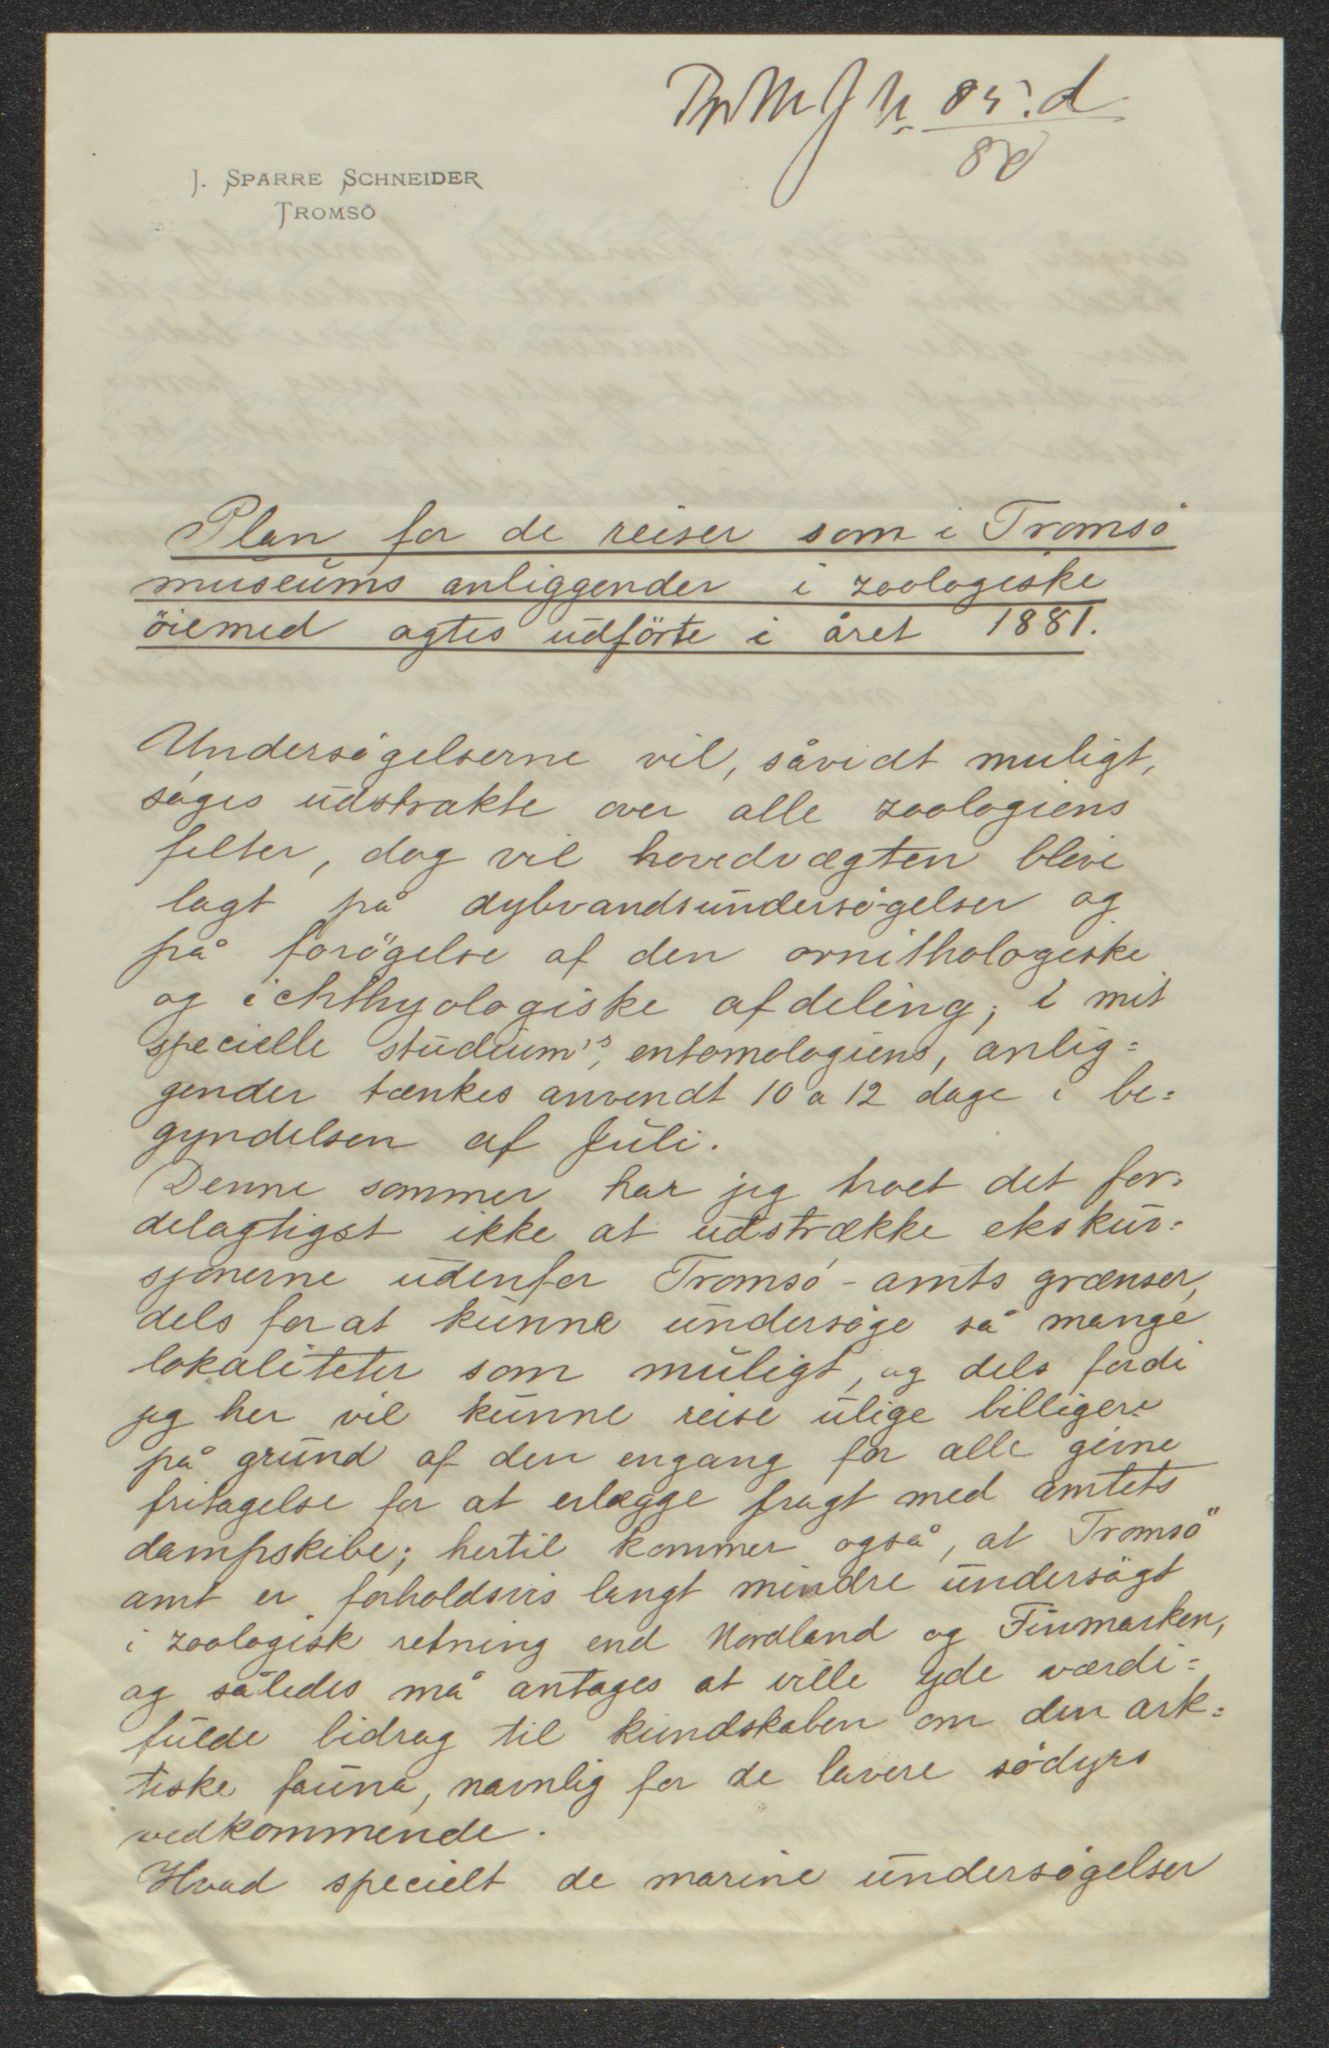 TrMJN 85.d
80
J. SPARRE SCHNEIDER
TROMSÖ
Plan for de reiser som i Tromsö
museums anliggender i zoologiske
öiemed agtes udförte i året 1881.
Undersögelserne vil, såvidt muligt,
söges udstrakte over alle zoologiens
felter, dog vil hovedvægten blive
lagt på dybvandsundersögelser og
på forögelse af den ornithologiske
og ichthyologiske afdeling; i mit
specielle studium's, entomologiens, anlig=
gender tænkes anvendt 10 a 12 dage i be=
gyndelsen af Juli.
Denne sommer har jeg troet det for=
delagtigst ikke at udstrække ekskur=
sjonerne udenfor Tromsö-amts grænser,
dels for at kunne undersöge så mange
lokaliteter som muligt, og dels fordi
jeg her vil kunne reise ulige billigere
på grund af den engang for alle givne
fritagelse for at erlægge fragt med amtets
dampskibe; hertil kommer også, at Tromsö
amt er forholdsvis langt mindre undersögt
i zoologisk retning end Nordland og Finmarken,
og således må antages at ville yde værdi=
fulde bidrag til kundskaben om den ark=
tiske fauna, navnlig for de lavere södyrs
vedkommende.
Hvad specielt de marine undersögelser